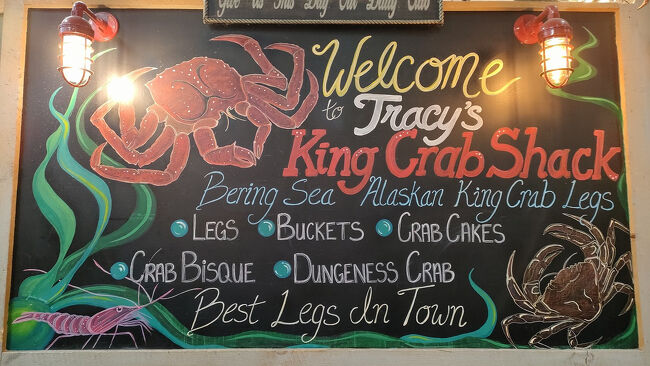 Give Us This Day Our Daily Crab
Welcome
to Tracy's
King Crab Shack
Bering Sea Alaskan King Crab Legs
Legs Buckets Crab Cakes
Crab Bisque Dungeness Crab
Best Legs In Town